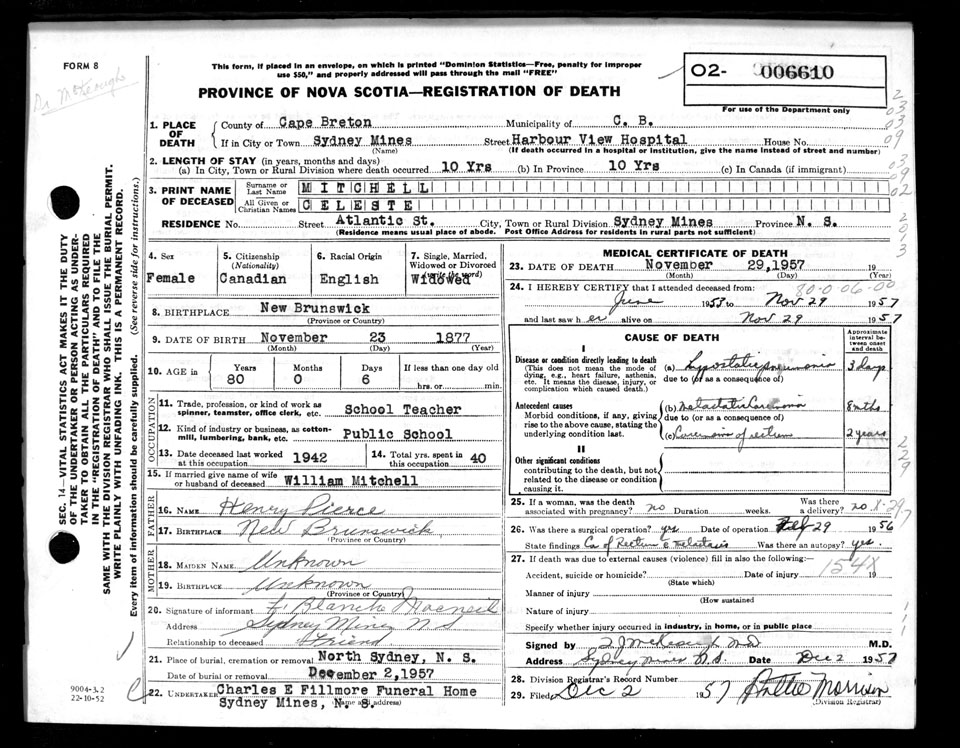 FORM 8
This form, if placed in an envelope, on which is printed "Dominion Statistics—Free, penalty for improper
use $50," and properly addressed will pass through the mail "FREE"
PROVINCE OF NOVA SCOTIA—REGISTRATION OF DEATH
02- 006610
For use of the Department only
1. PLACE OF DEATH
County of Cape Breton Municipality of C. B.
If in City or Town Sydney Mines Street Harbour View Hospital House No.
(Name) (If death occurred in a hospital or institution, give the name instead of street and number)
2. LENGTH OF STAY (in years, months and days)
(a) In City, Town or Rural Division where death occurred 10 Yrs (b) In Province 10 Yrs (c) In Canada (if immigrant)
3. PRINT NAME OF DECEASED
Surname or Last Name MITCHELL
All Given or Christian Names CELESTE
RESIDENCE No. Street Atlantic St. City, Town or Rural Division Sydney Mines Province N. S.
(Residence means usual place of abode. Post Office Address for residents in rural parts not sufficient)
SEC. 14—VITAL STATISTICS ACT MAKES IT THE DUTY
OF THE UNDERTAKER OR PERSON ACTING AS UNDER-
TAKER TO OBTAIN ALL THE PARTICULARS REQUIRED
IN THE "REGISTRATION OF DEATH" AND TO FILE THE
SAME WITH THE DIVISION REGISTRAR WHO SHALL ISSUE THE BURIAL PERMIT.
WRITE PLAINLY WITH UNFADING INK. THIS IS A PERMANENT RECORD.
Every item of information should be carefully supplied. (See reverse side for instructions.)
4. Sex 5. Citizenship (Nationality) 6. Racial Origin 7. Single, Married, Widowed or Divorced (write the word)
Female Canadian English Widowed
8. BIRTHPLACE New Brunswick
(Province or Country)
9. DATE OF BIRTH November 23 1877
(Month) (Day) (Year)
10. AGE in Years Months Days If less than one day old
80 0 6 hrs. or min.
OCCUPATION
11. Trade, profession, or kind of work as spinner, teamster, office clerk, etc. School Teacher
12. Kind of industry or business, as cotton-mill, lumbering, bank, etc. Public School
13. Date deceased last worked at this occupation 1942 14. Total yrs. spent in this occupation 40
15. If married give name of wife or husband of deceased William Mitchell
FATHER
16. NAME Henry Pierce
17. BIRTHPLACE New Brunswick
(Province or Country)
MOTHER
18. MAIDEN NAME Unknown
19. BIRTHPLACE Unknown
(Province or Country)
20. Signature of informant Blanche Macneil
Address Sydney Mines N S
Relationship to deceased Friend
21. Place of burial, cremation or removal North Sydney, N. S.
Date of burial or removal December 2,1957
22. UNDERTAKER Charles E Fillmore Funeral Home
Sydney Mines, N. S.
(Name and address)
9004-3.2
22-10-52
MEDICAL CERTIFICATE OF DEATH
23. DATE OF DEATH November 29,1957 19
(Month) (Day) (Year)
80-0 06-00
24. I HEREBY CERTIFY that I attended deceased from:
June 1957 to Nov 29 1957
and last saw her alive on Nov 29 1957
CAUSE OF DEATH
Approximate interval between onset and death
I
Disease or condition directly leading to death
(This does not mean the mode of dying, e.g., heart failure, asthenia, etc. It means the disease, injury, or complication which caused death.)
(a) Hypostatic pneumonia 3 days
due to (or as a consequence of)
Antecedent causes
Morbid conditions, if any, giving rise to the above cause, stating the underlying condition last.
(b) Metastatic Carcinoma 8 mths
due to (or as a consequence of)
(c) Carcinoma of rectum 2 years
II
Other significant conditions
contributing to the death, but not related to the disease or condition causing it.
25. If a woman, was the death associated with pregnancy? no Duration weeks. Was there a delivery? no
26. Was there a surgical operation? yes Date of operation Feb 29 1956
State findings Ca of Rectum c Metastasis Was there an autopsy? yes.
27. If death was due to external causes (violence) fill in also the following:—
154X
Accident, suicide or homicide? Date of injury 19
(State which)
Manner of injury
(How sustained
Nature of injury
Specify whether injury occurred in industry, in home, or in public place
Signed by M.D.
Address Sydney Mines N.S. Date Dec 2 1957
28. Division Registrar's Record Number
29. Filed Dec 2 1957 Morrison
(Division Registrar)